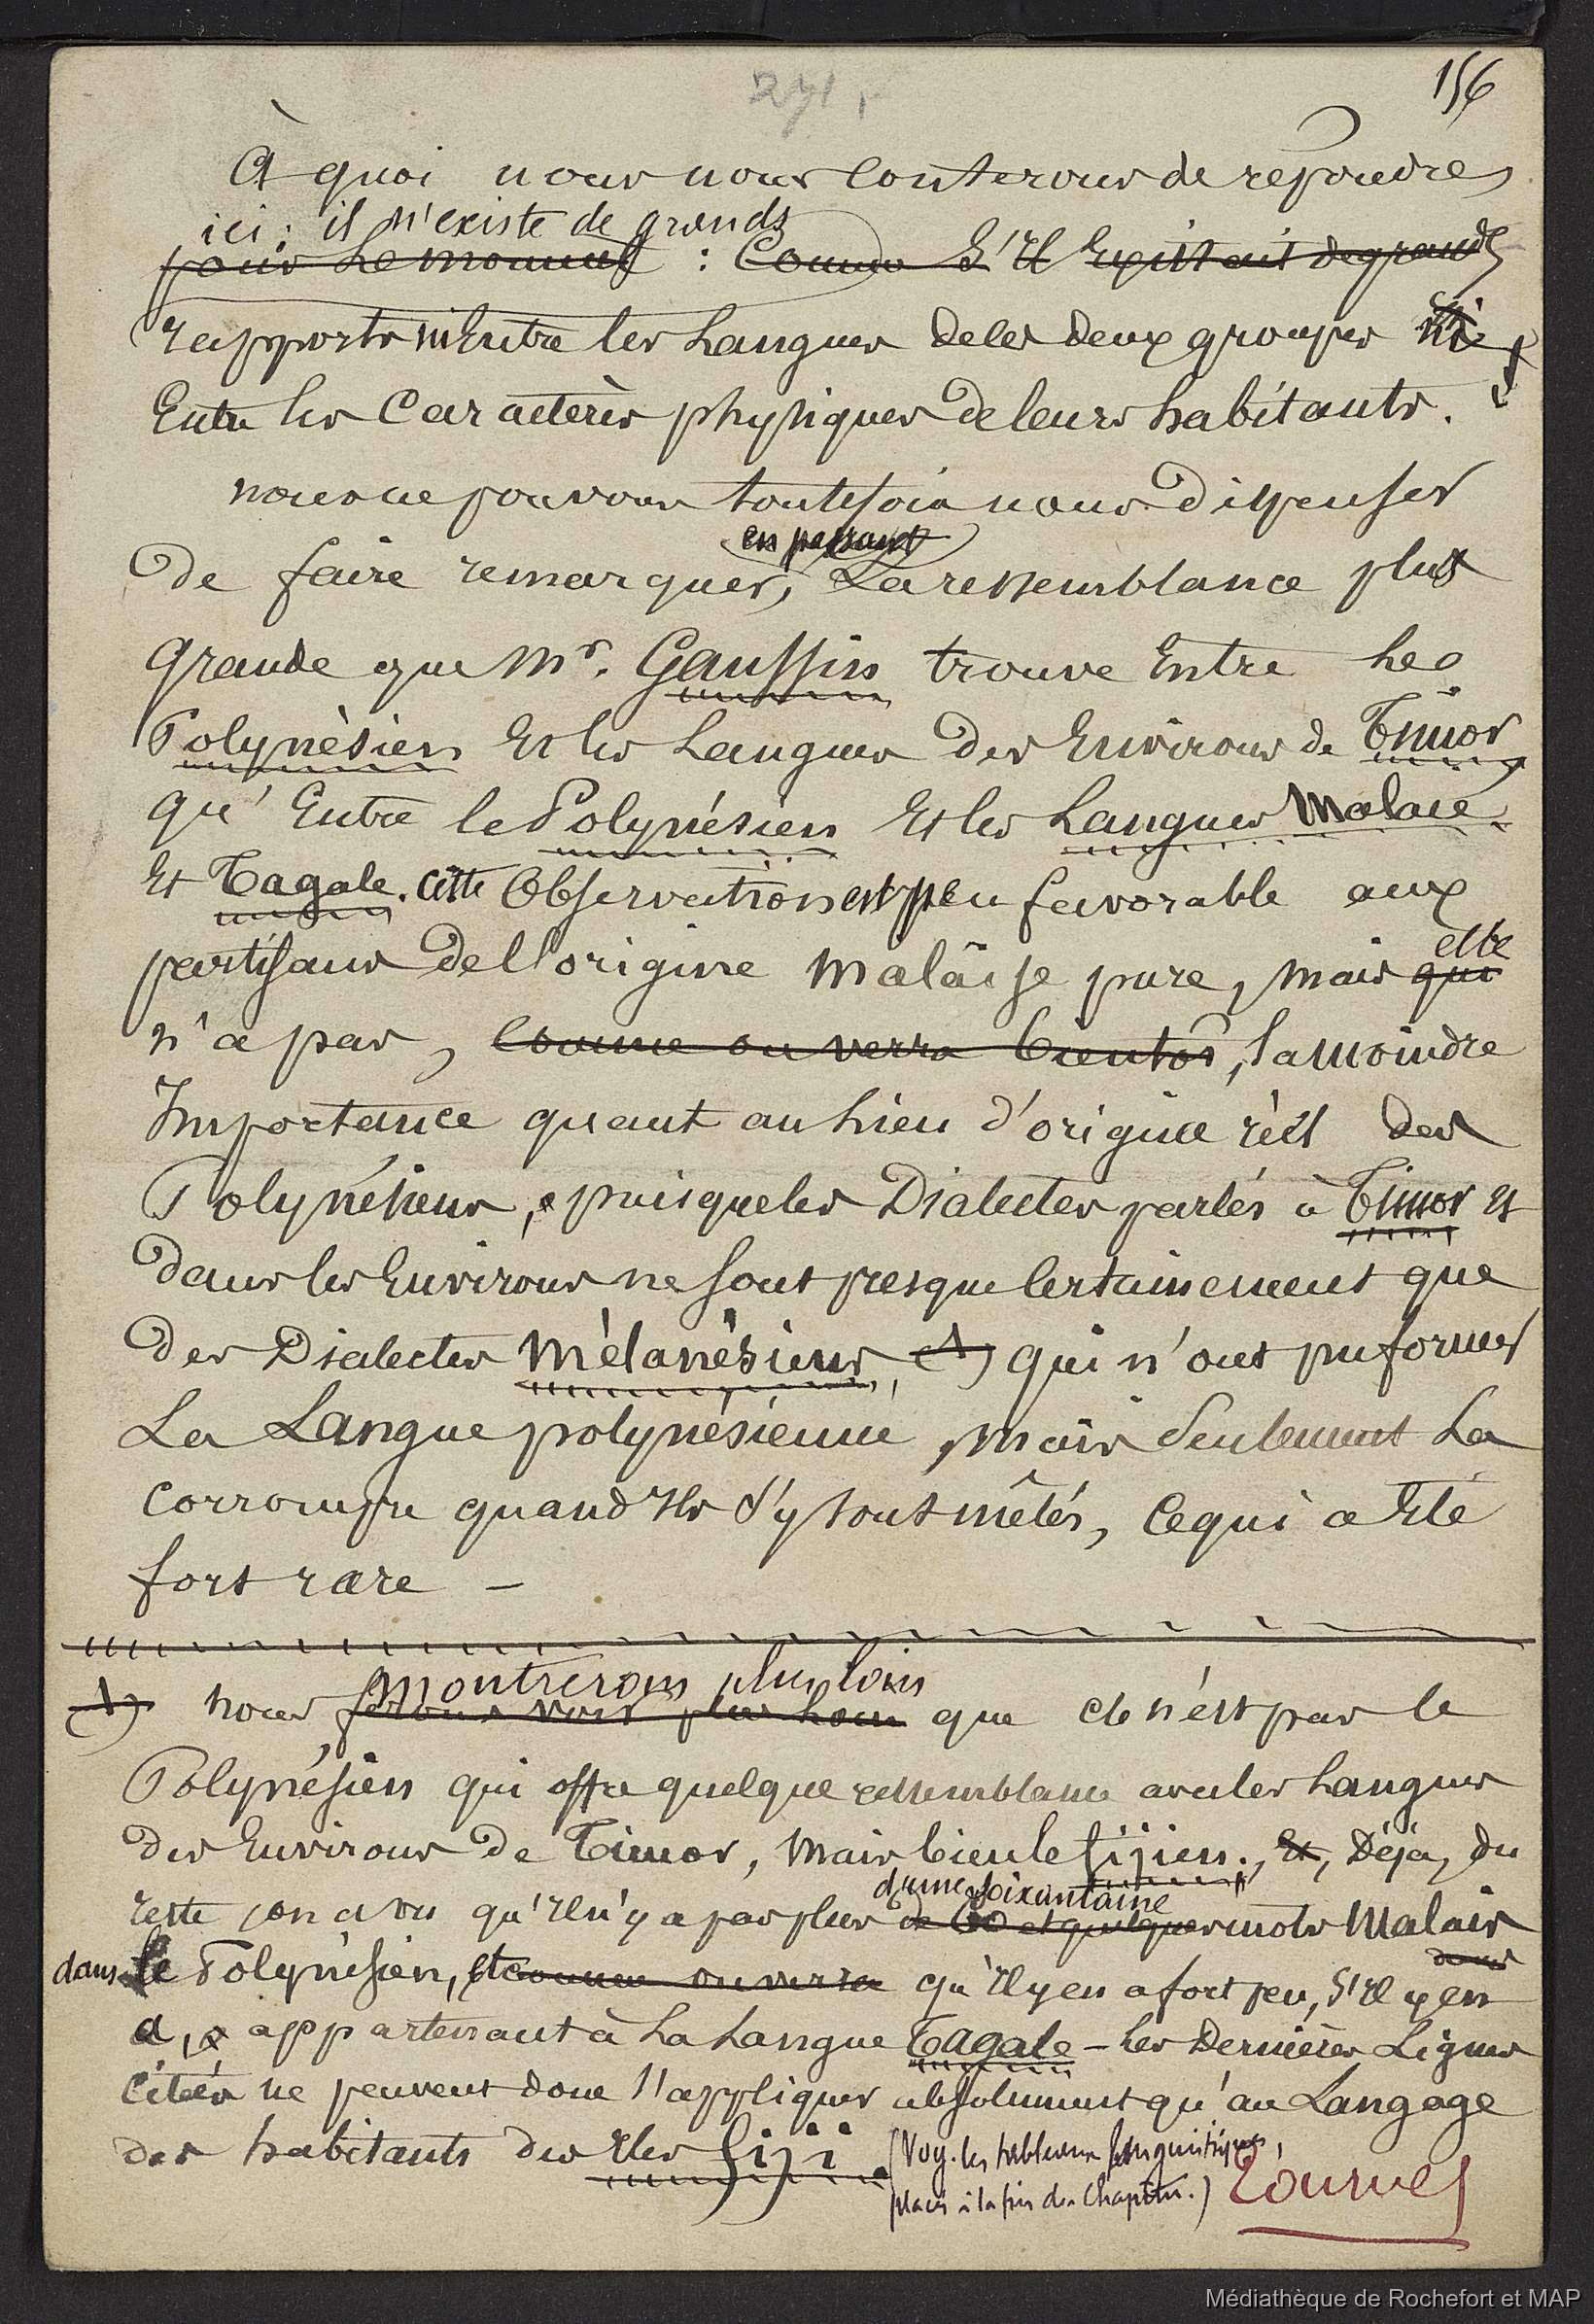 156
271
À quoi nous nous conterons de répondre,
ici : il n'existe de grands
pour le moment : Comme s'il Existait de grands
rapports ni Entre les Langues de ces deux groupes ni
Entre les Caractères physiques de leurs habitants.
nous ne pouvons toutefois nous dispenser
en passant
de faire remarquer, La ressemblance plus
Grande que Mr. Gaussin trouve Entre Le
Polynèsien Et les Langues des Environs de Timor
qu'Entre le Polynésien Et les Langues Malaie
Et Tagale. cette Observation est peu favorable aux
elle
partisans de l'origine Malaise pure, mais qui
n'a pas, Comme on verra bientôt, la moindre
Importance quant au Lieu d'origine réel des
Polynésiens, puisque les Dialectes parlés à Timor Et
dans les Environs ne sont presque Certainement que
des Dialectes Mélanésiens, (1) qui n'ont pu former
La Langue polynésienne, mais Seulement La
Corrompre quand Ils s'y sont mêlés, Ce qui a Eté
fort rare –
montrerons plus loin
(1) nous ferons voir plus loin que ce n'est pas le
Polynésien qui offre quelque ressemblance avec les Langues
des Environs de Timor, Mais bien le fijien., Et, Déja, du
d'une soixantaine
reste, on a vu qu'Il n'y a pas plus de 60 et quelques mots Malais
dans
dans le Polynésien, Et comme on verra qu'Il y en a fort peu, S'Il y en
a, appartenant à La Langue Tagale – Les Dernières Lignes
Citées ne peuvent donc s'appliquer absolument qu'au Langage
des habitants des Iles fiji. (Voy. les tableaux linguistiques,
placés à la fin du Chapitre.) Tournez
Médiathèque de Rochefort et MAP